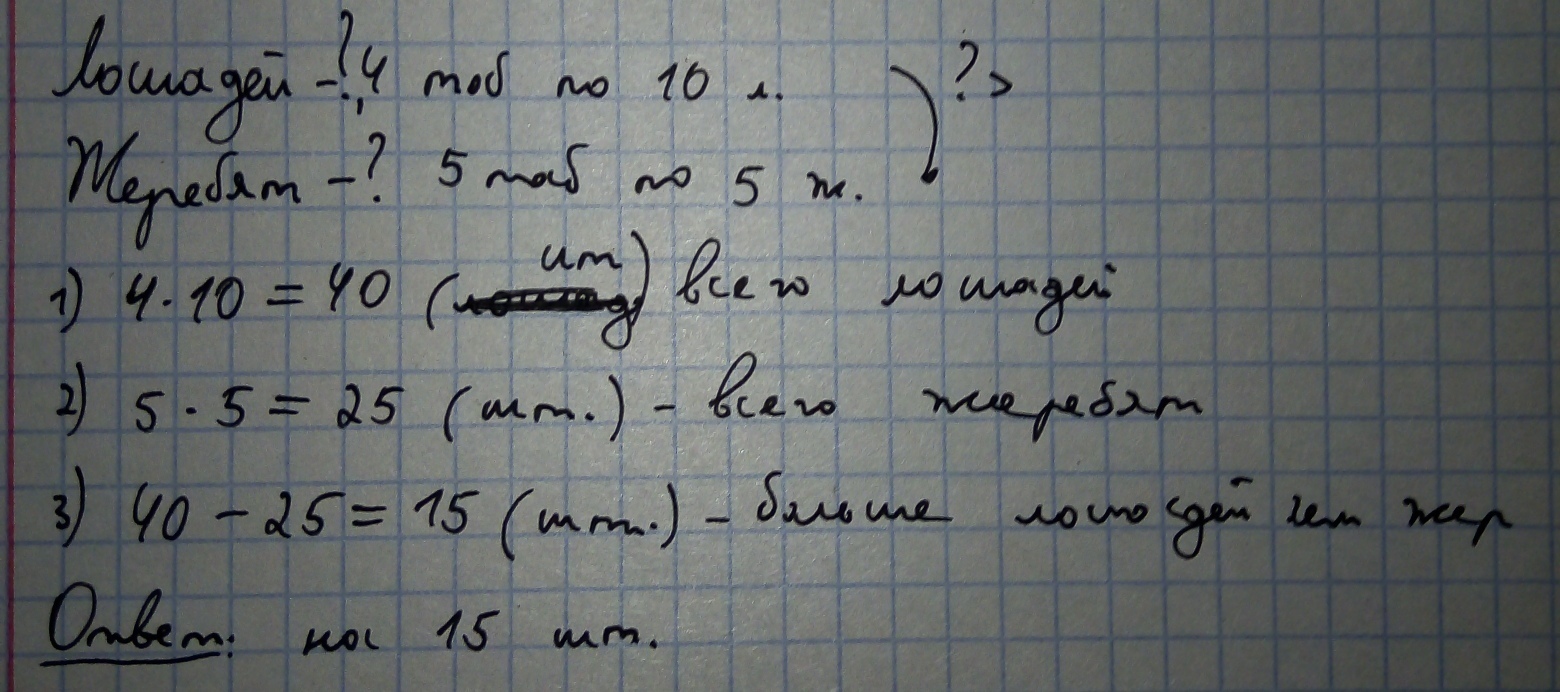 Лошадей -?, 4 таб по 10 л. ?>
Жеребят -? 5 таб по 5 ж.
1) 4·10=40 (шт) всего лошадей
2) 5·5=25 (шт.) - всего жеребят
3) 40-25=15 (шт.) - больше лошадей чем жер
Ответ: на 15 шт.